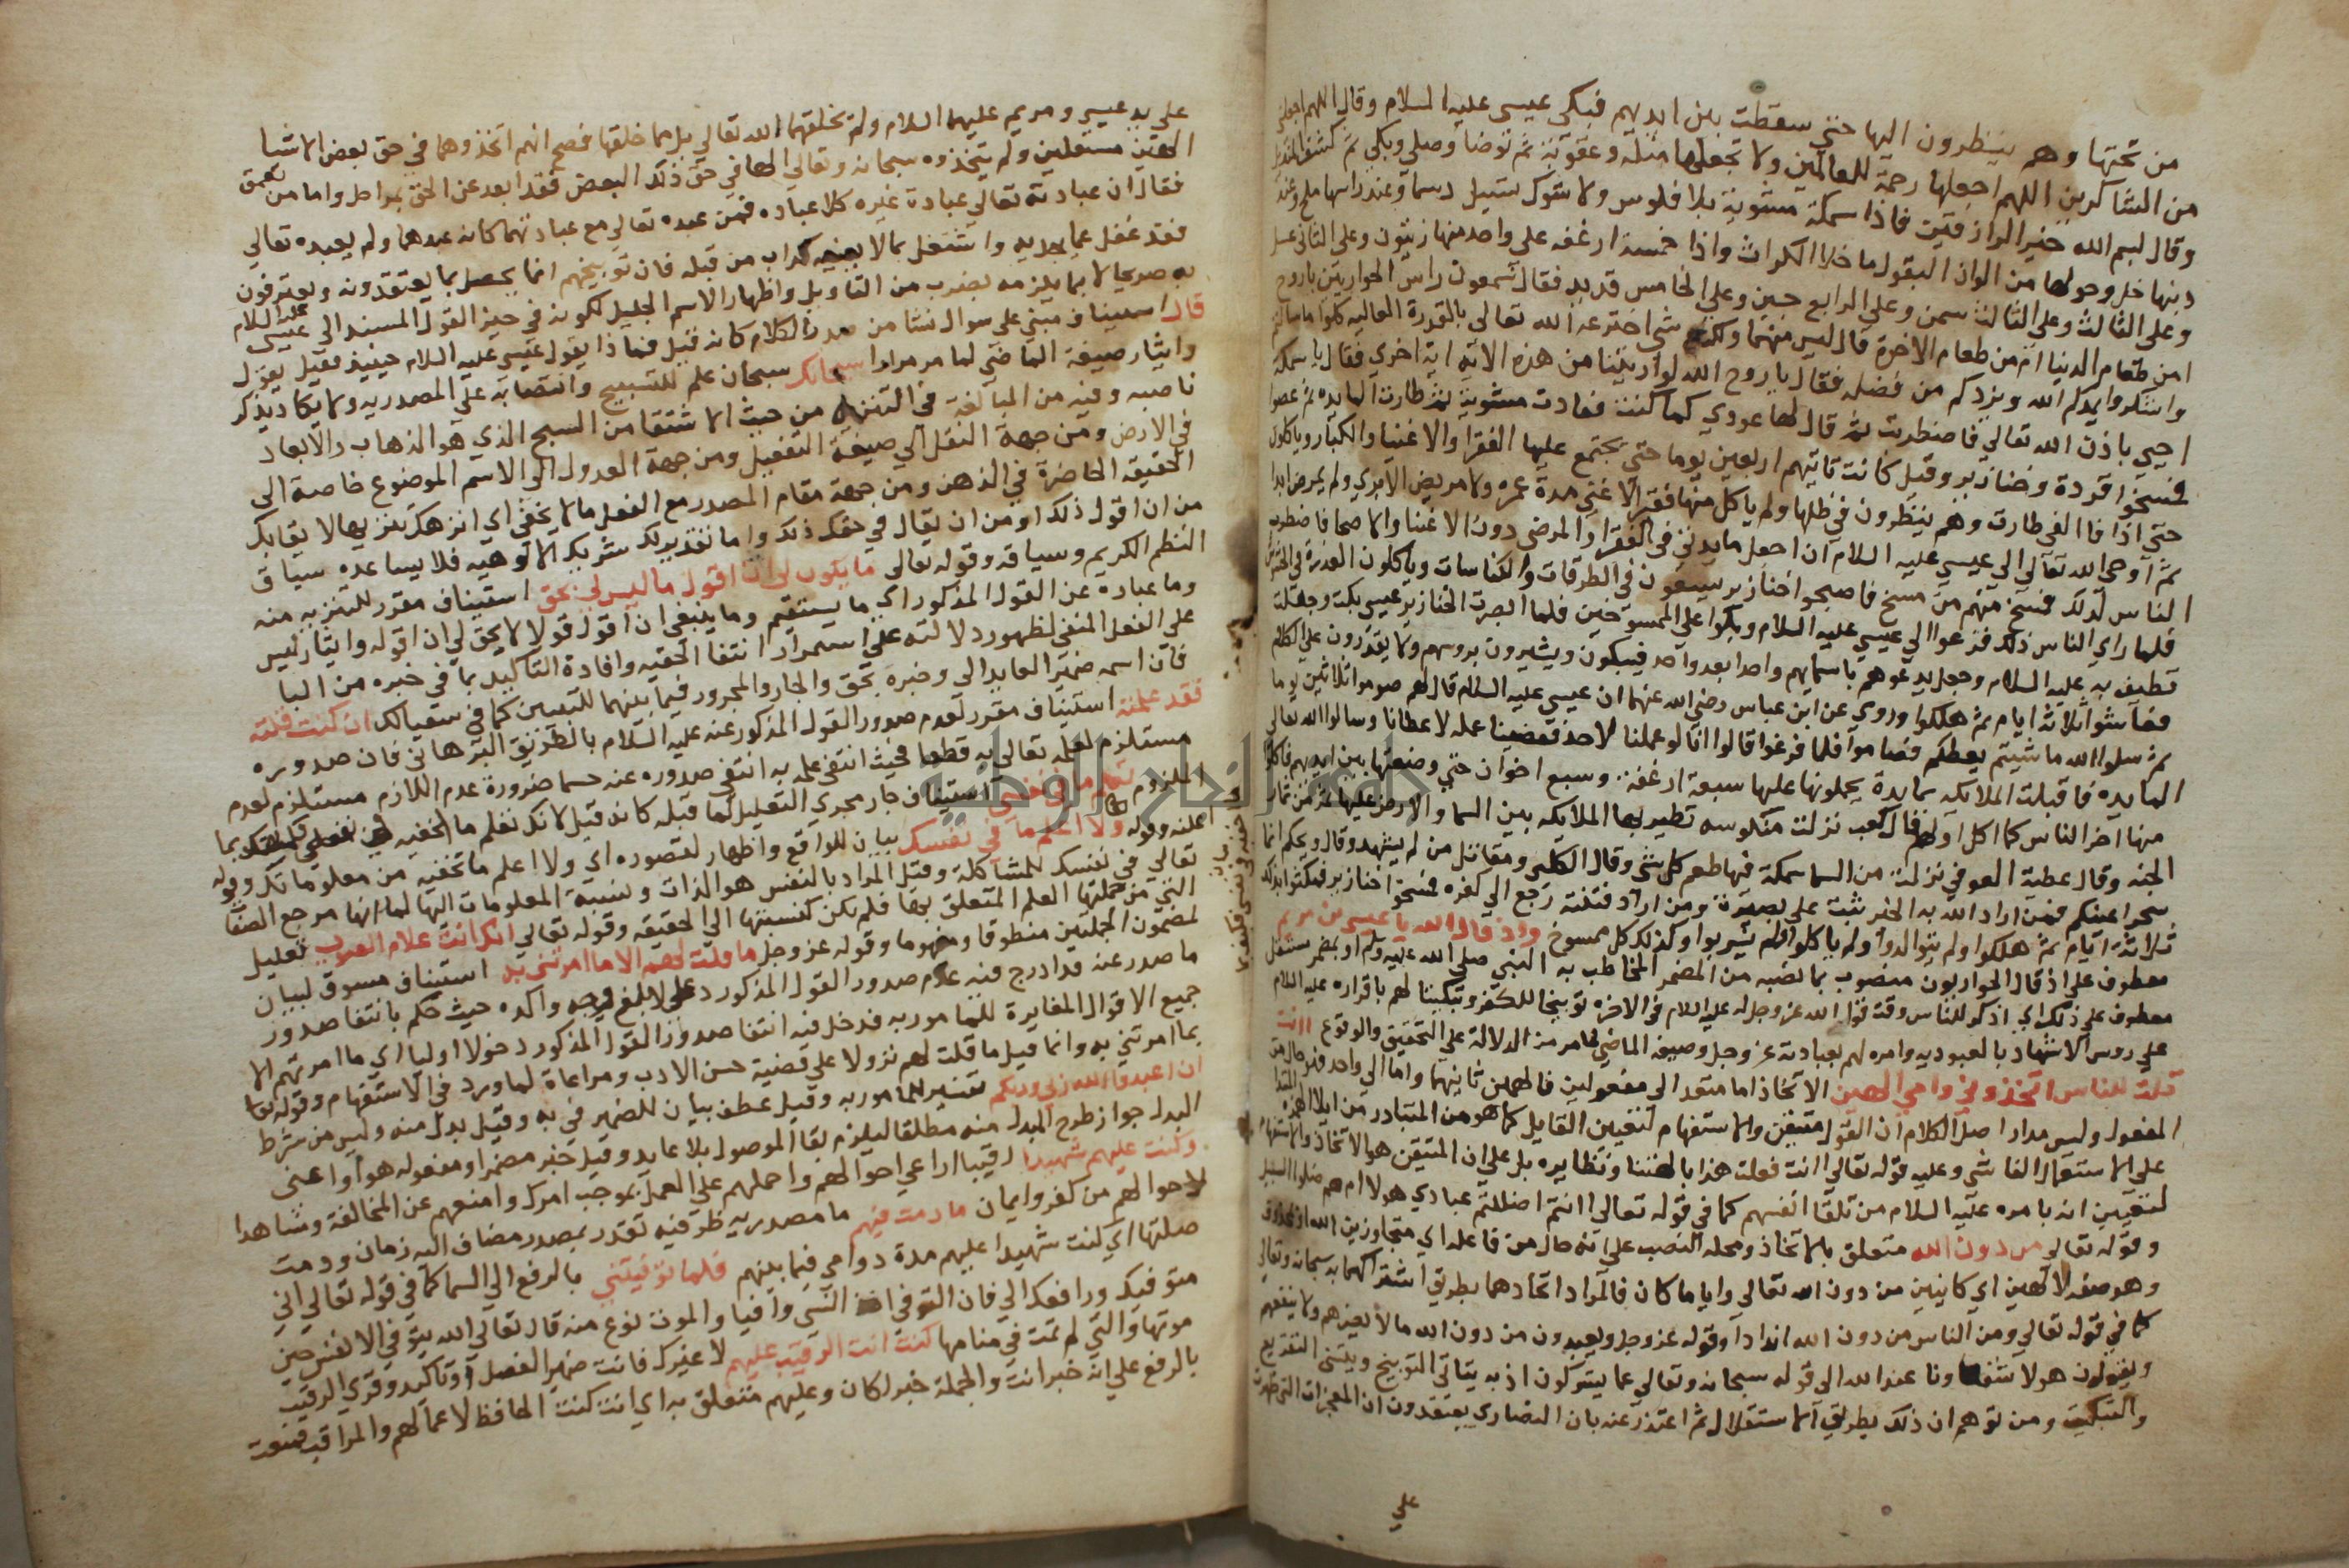 من تحتها وهم ينظرون اليها حتى سقطت بين ايديهم فبكى عيسى عليه السلام وقال اللهم اجعلني
من الشاكرين اللهم اجعلها رحمة للعالمين ولا تجعلها مثلة وعقوبة ثم توضا وصلى وبكى ثم كشف المنديل
وقال بسم الله خير الرازقين فاذا سمكة مشوية بلا فلوس ولا شوك تسيل دسما وعند راسها ملح وعند
ذنبها خل وحولها من الوان البقول ما خلا الكراث واذا خمسة ارغفه على واحد منها زيتون وعلى الثاني عسل
وعلى الثالث سمن وعلى الرابع جبن وعلى الخامس قديد فقال شمعون راس الحواريين يا روح
امن طعام الدنيا ام من طعام الاخرة قال ليس منهما ولكنه شي اخترعه الله تعالى بالقدرة العاليه كلوا ما سالتم
واشكروا يمددكم الله ويزدكم من فضله فقال يا روح الله لو اريتنا من هذه الايه اية اخرى فقال يا سمكة
احيي باذن الله تعالى فاضطربت ثم قال لها عودي كما كنت فعادت مشوية ثم طارت المايده ثم عصوا
فمسخوا قردة وخنازير وقيل كانت تاتيهم اربعين يوما حتى يجتمع عليها الفقرا والاغنيا والكبار وياكلون
حتى اذا فا الفي طارت وهم ينظرون في ظلها ولم ياكل منها فقير الا غنى مدة عمره ولا مريض الا بري ولم يمرض ابدا
ثم اوحى الله تعالى الى عيسى عليه السلام ان اجعل مايدتي في الفقرا والمرضى دون الاغنيا والاصحا فاضطرب
الناس لذلك فمسخ منهم من مسخ فاصبحوا خنازير يسعون في الطرقات والكناسات وياكلون العذرة في الحشوش
فلما راى الناس ذلك فزعوا الى عيسى عليه السلام وبكوا على الممسوخين فلما ابصرت الخنازير عيسى بكت وجعلت
تطيف به عليه السلام وجعل يدعوهم باسمايهم واحدا بعد واحد فيبكون ويشيرون بروسهم ولا يقدرون على الكلام
فعاشوا ثلاثة ايام ثم هلكوا وروي عن ابن عباس رضي الله عنهما ان عيسى عليه السلام قال لهم صوموا ثلاثين يوما
ثم سلوا الله ما شيتم يعطكم فصاموا فلما فرغوا قالوا انا لو عملنا لاحد فقضينا عمله لاعطانا وسالوا الله تعالى
المايده فاقبلت الملايكه بمايدة يحملونها عليها سبعة ارغفة وسبع اخوان حتى وضعتها بين ايديهم فاكل
منها اخر الناس كما اكل اولهم قال كعب نزلت منكوسه تطير بها الملايكه بين السما والارض عليها ثمر من ثمار
الجنه وقال عطية العوفي نزلت من السما سمكة فيها طعم كل شي وقال الكلبي ومقاتل من لم يشهد وقال ويحكم انما
سحر اعينكم فمن اراد الله به الخير ثبت على بصيرة ومن اراد فتنته رجع الى كفره فمسخوا خنازير فمكثوا بذلك
ثلاثة ايام ثم هلكوا ولم يتوالدوا ولم ياكلوا ولم يشربوا وكذلك كل ممسوخ واذ قال الله يا عيسى بن مريم
معطوف على اذ قال الحواريون منصوب بما نصبه من المضمر المخاطب به النبي صلى الله عليه وسلم او بمضمر مستقل
معطوف على ذلك اي اذكر للناس وقت قول الله عز وجل له عليه السلام في الاخره توبيخا للكفرة وتبكيتا لهم باقراره عليه السلام
على روس الاشهاد بالعبوديه وامره لهم بعبادته عز وجل وصيغة الماضي لما مر من الدلالة على التحقيق والوقوع اانت
قلت للناس اتخذوني وامي الهين الاتخاذ اما متعد الى مفعولين فالهين ثانيهما واما الى واحد فهو حال من
المفعول وليس مدار اصل الكلام ان القول متيقن والاستفهام لتعيين القايل كما هو من المتبادر من ايلا الهمزة المبتدا
على الاستعمال الفاشي وعليه قوله تعالى اانت فعلت هذا بالهتنا ونظايره بل على ان المتيقن هو الاتخاذ والاستفهام
لتعيين انه بامره عليه السلام من تلقا انفسهم كما في قوله تعالى اانتم اضللتم عبادي هولا ام هم ضلوا السبيل
وقوله تعالى من دون الله متعلق بالاتخاذ ومحله النصب على انه حال من فاعله اي متجاوزين الله او بمحذوف
وهو صفه لالهين اي كاينين من دون الله تعالى وايا ما كان فالمراد اتخاذهما بطريق اشراكهما به سبحانه وتعالى
كما في قوله تعالى ومن الناس من دون الله اندادا وقوله عز وجل ويعبدون من دون الله ما لا يضرهم ولا ينفعهم
ويقولون هولا شفعاونا عند الله الى قوله سبحانه وتعالى عما يشركون اذ به يتاتى التوبيخ ويتسنى التقريع
والتبكيت ومن توهم ان ذلك بطريق الاستقلال ثم اعتذر عنه بان النصارى يعتقدون ان المعجزات التي ظهرت
على
على يد عيسى ومريم عليهما السلام ولم يخلقهما الله تعالى بل هما خلقها فصح انهم اتخذوهما في حق بعض الاشيا
الهين مستقلين ولم يتخذوه سبحانه وتعالى الها في حق ذلك البعض فقد ابعد عن الحق بمراحل واما من تعمق
فقال ان عبادته تعالى عبادة غيره كلا عباده فمن عبده تعالى مع عبادتهما كانه عبدهما ولم يعبده تعالى
فقد غفل عما يجديه واشتغل بما لا يعنيه كداب من قبله فان توبيخهم انما يحصل بما يعتقدونه ويعترفون
به صريحا لا بما يلزمه بضرب من التاويل واظهار الاسم الجليل لكونه في حيز القول المسند الى عيسى عليه السلام
قال استيناف مبني على سوال نشا من صدر الكلام كانه قيل فماذا يقول عيسى عليه السلام حينيذ فقيل يقول
وايثار صيغة الماضي لما مر مرارا سبحانك سبحان علم للتسبيح وانتصابه على المصدريه ولا يكاد يذكر
ناصبه وفيه من المبالغة في التنزيه من حيث الاشتقاق من السبح الذي هو الذهاب والابعاد
في الارض ومن جهة النقل الى صيغة التفعيل ومن جهة العدول الى الاسم الموضوع خاصة الى
الحقيقه الحاضرة في الذهن ومن جهة مقام المصدر مع الفعل ما لا يخفى اي انزهك تنزيها لايقا بك
من ان اقول ذلك او من ان يقال في حقك ذلك واما تقدير لك شريك الالوهيه فلا يساعده سياق
النظم الكريم وسياقه وقوله تعالى ما يكون لي ان اقول ما ليس لي بحق استيناف مقرر للتنزيه منه
وما عبارة عن القول المذكور اي ما يستقيم وما ينبغي ان اقول قولا لا يحق لي ان اقوله وايثار ليس
على الفعل المنفي لظهور دلالته على استمرار انتفا الحقيه وافادة التاكيد بما في خبره من البا
فان اسمه ضمير العايد الى وخبره بحق والجار والمجرور فيما بينهما للتبيين كما في سقيا لك ان كنت قلته
فقد علمته استيناف مقرر لعدم صدور القول المذكور عنه عليه السلام بالطريق البرهاني فان صدوره
مستلزم لعلمه تعالى به قطعا فحيث انتفى علمه به انتفى صدوره عنه حتما ضرورة عدم اللازم مستلزم لعدم
الملزوم تعلم ما في نفسي استيناف جار مجرى التعليل لما قبله كانه قيل لانك تعلم ما اخفيه في نفسي فكيف بما
اعلنه وقوله ولا اعلم ما في نفسك بيان للواقع واظهار لقصوره اي ولا اعلم ما تخفيه من معلوماتك وقوله
تعالى في نفسك للمشاكلة وقيل المراد بالنفس هو الذات ونسبة المعلومات اليها لما انها مرجع الصفات
التي من جملتها العلم المتعلق بها فلم يكن كنسبتها الى الحقيقه وقوله تعالى انك انت علام الغيوب تعليل
لمضمون الجملتين منطوقا ومفهوما وقوله عز وجل ما قلت لهم الا ما امرتني به استيناف مسوق لبيان
ما صدر عنه قد ادرج فيه عدم صدور القول المذكور على ابلغ وجه واكده حيث حكم بانتفا صدور
جميع الاقوال المغايرة للمامور به فدخل فيه انتفا صدور القول المذكور دخولا اوليا اي ما امرتهم الا
بما امرتني به وانما قيل ما قلت لهم نزولا على قضية حسن الادب ومراعاة لما ورد في الاستفهام وقوله تعالى
ان اعبدوا الله ربي وربكم تفسير للمامور به وقيل عطف بيان للضمير في به وقيل بدل منه وليس من شرط
البدل جواز طرح المبدل منه مطلقا ليلزم بقا الموصول بلا عايد وقيل خبر مضمر او مفعوله هو او اعنى
وكنت عليهم شهيدا رقيبا اراعي احوالهم واحملهم على العمل بموجب امرك وامنعهم عن المخالفة وشاهدا
لاحوالهم من كفر وايمان ما دمت فيهم ما مصدريه ظرفيه تقدر بمصدر مضاف اليه زمان ودمت
صلتها اي كنت شهيدا عليهم مدة دوامي فيما بينهم فلما توفيتني بالرفع الى السما كما في قوله تعالى اني
متوفيك ورافعك الي فان التوفي اخذ الشي وافيا والموت نوع منه قال تعالى الله يتوفى الانفس حين
موتها والتي لم تمت في منامها كنت انت الرقيب عليهم لا غيرك فانت ضمير الفصل او تاكيد وقرى الرقيب
بالرفع على انه خبر انت والجملة خبر لكان وعليهم متعلق به اي انت كنت الحافظ لاعمالهم والمراقب فمنعت
جامعة النجاح الوطنية